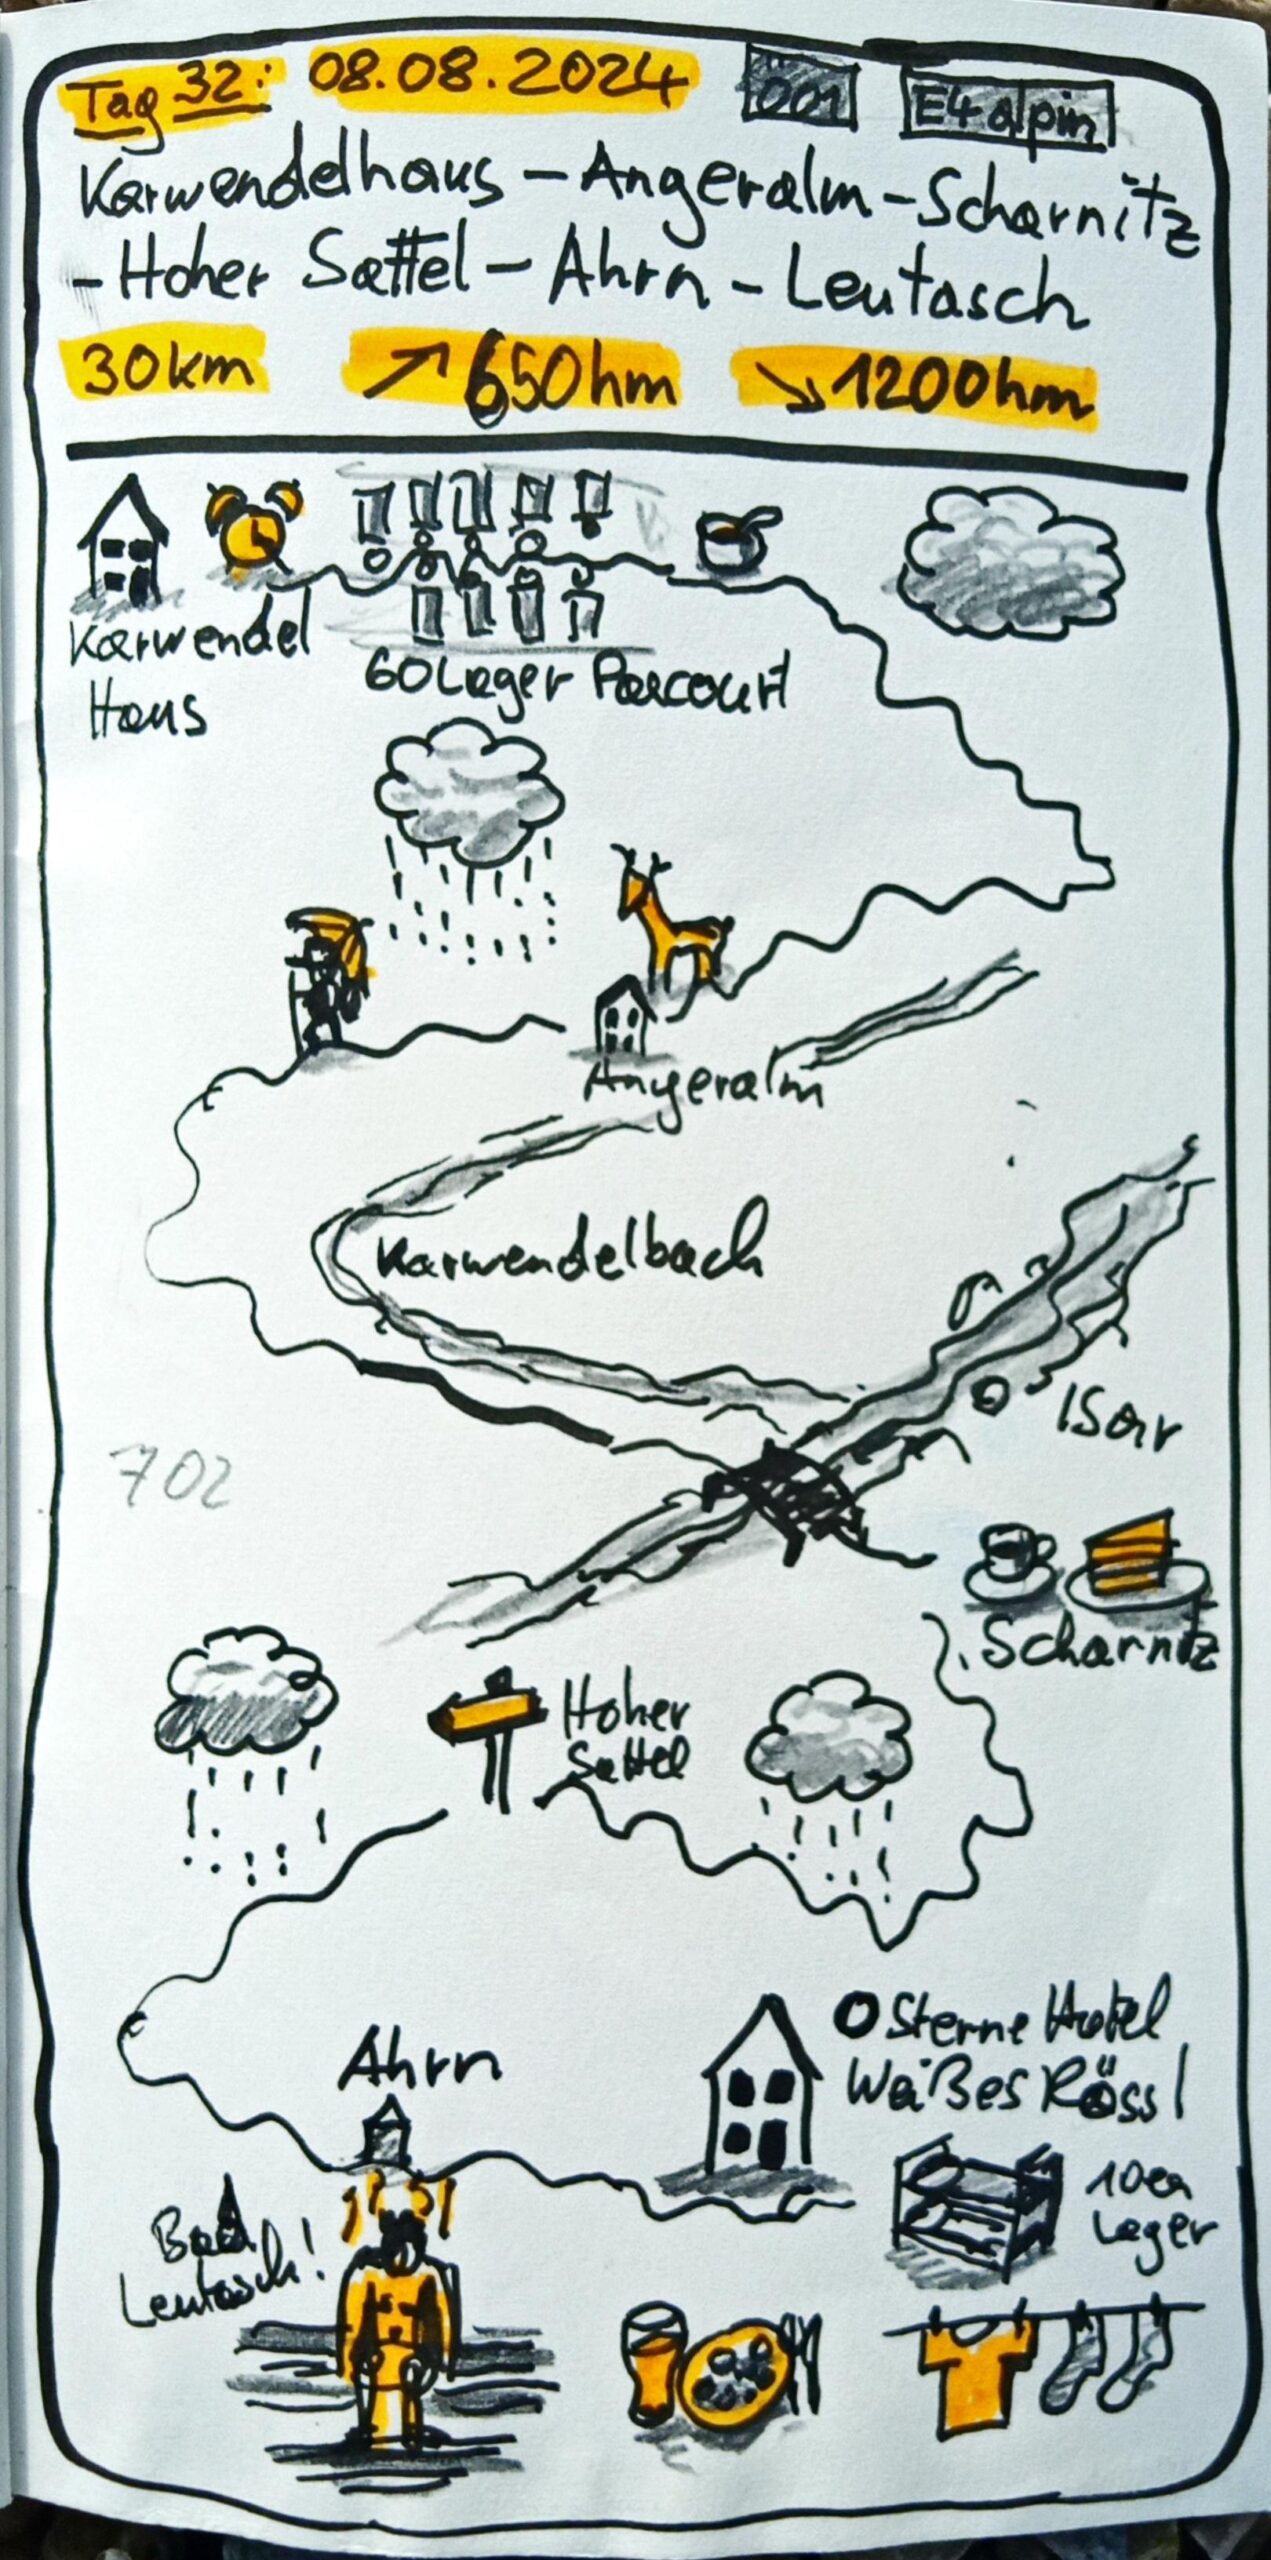 Tag 32: 08.08.2024 001 E4 alpin
Karwendelhaus - Angeralm - Scharnitz
- Hoher Sattel - Ahrn - Leutasch
30km ↗ 650hm ↘ 1200hm
Karwendel
Haus
60 Lager Parcourt
Angeralm
Karwendelbach
Isar
702
Scharnitz
Hoher
Sattel
Ahrn
0 Sterne Hotel
Weißes Rössl
10er
Lager
Bad
Leutasch!